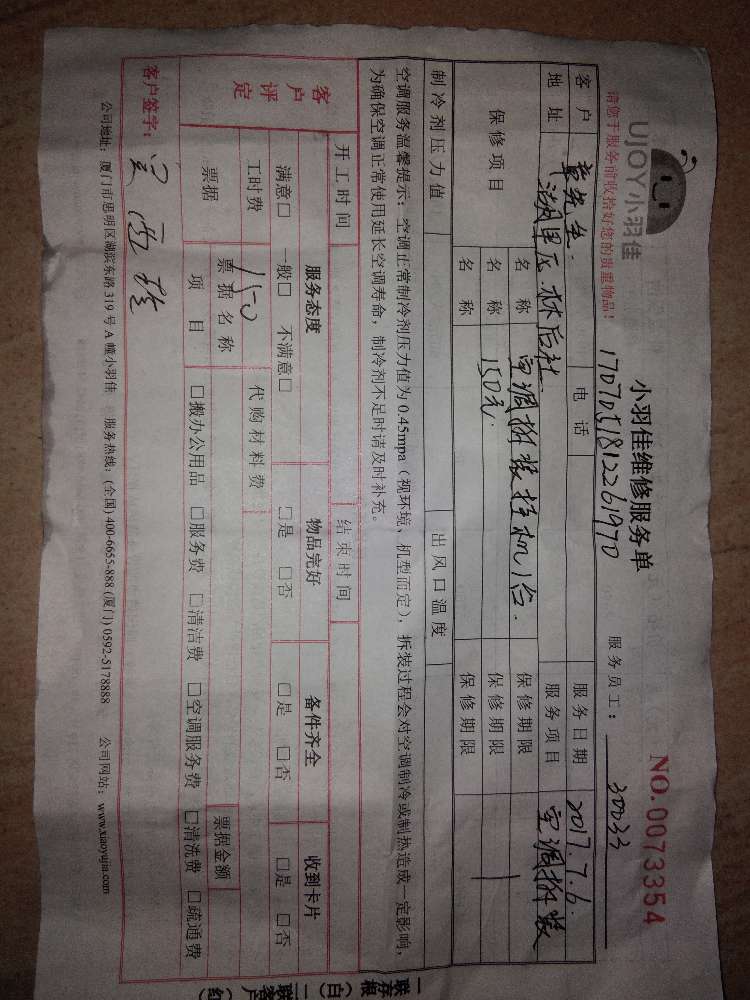 UJOY小羽佳
小羽佳维修服务单
NO.0073354
请您于服务前收拾好您的贵重物品！
1707051812261970
服务员工：30033
客户
电话
服务日期 2017.7.6
地址 湖里区.林后社
服务项目 空调拆装
保修项目
名称 空调拆装挂机1台.
保修期限
名称 150元.
保修期限
名称
保修期限
制冷剂压力值
出风口温度
空调服务温馨提示：空调正常制冷剂压力值为0.45mpa（视环境、机型而定），拆装过程会对空调制冷或制热造成一定影响，
为确保空调正常使用延长空调寿命，制冷剂不足时请及时补充。
开工时间
结束时间
客户评定
服务态度 物品完好 备件齐全 收到卡片
满意□ 一般□ 不满意□ □是 □否 □是 □否 □是 □否
工时费 150 代购材料费
票据 票据名称 票据金额
项目 □搬办公用品 □服务费 □清洁费 □空调服务费 □清洗费 □疏通费
客户签字：
公司地址：厦门市思明区湖滨东路319号A幢小羽佳 服务热线：(全国)400-6655-888 (厦门)0592-5178888 公司网站：www.xiaoyujia.com
一联存根（白）二联客户（红